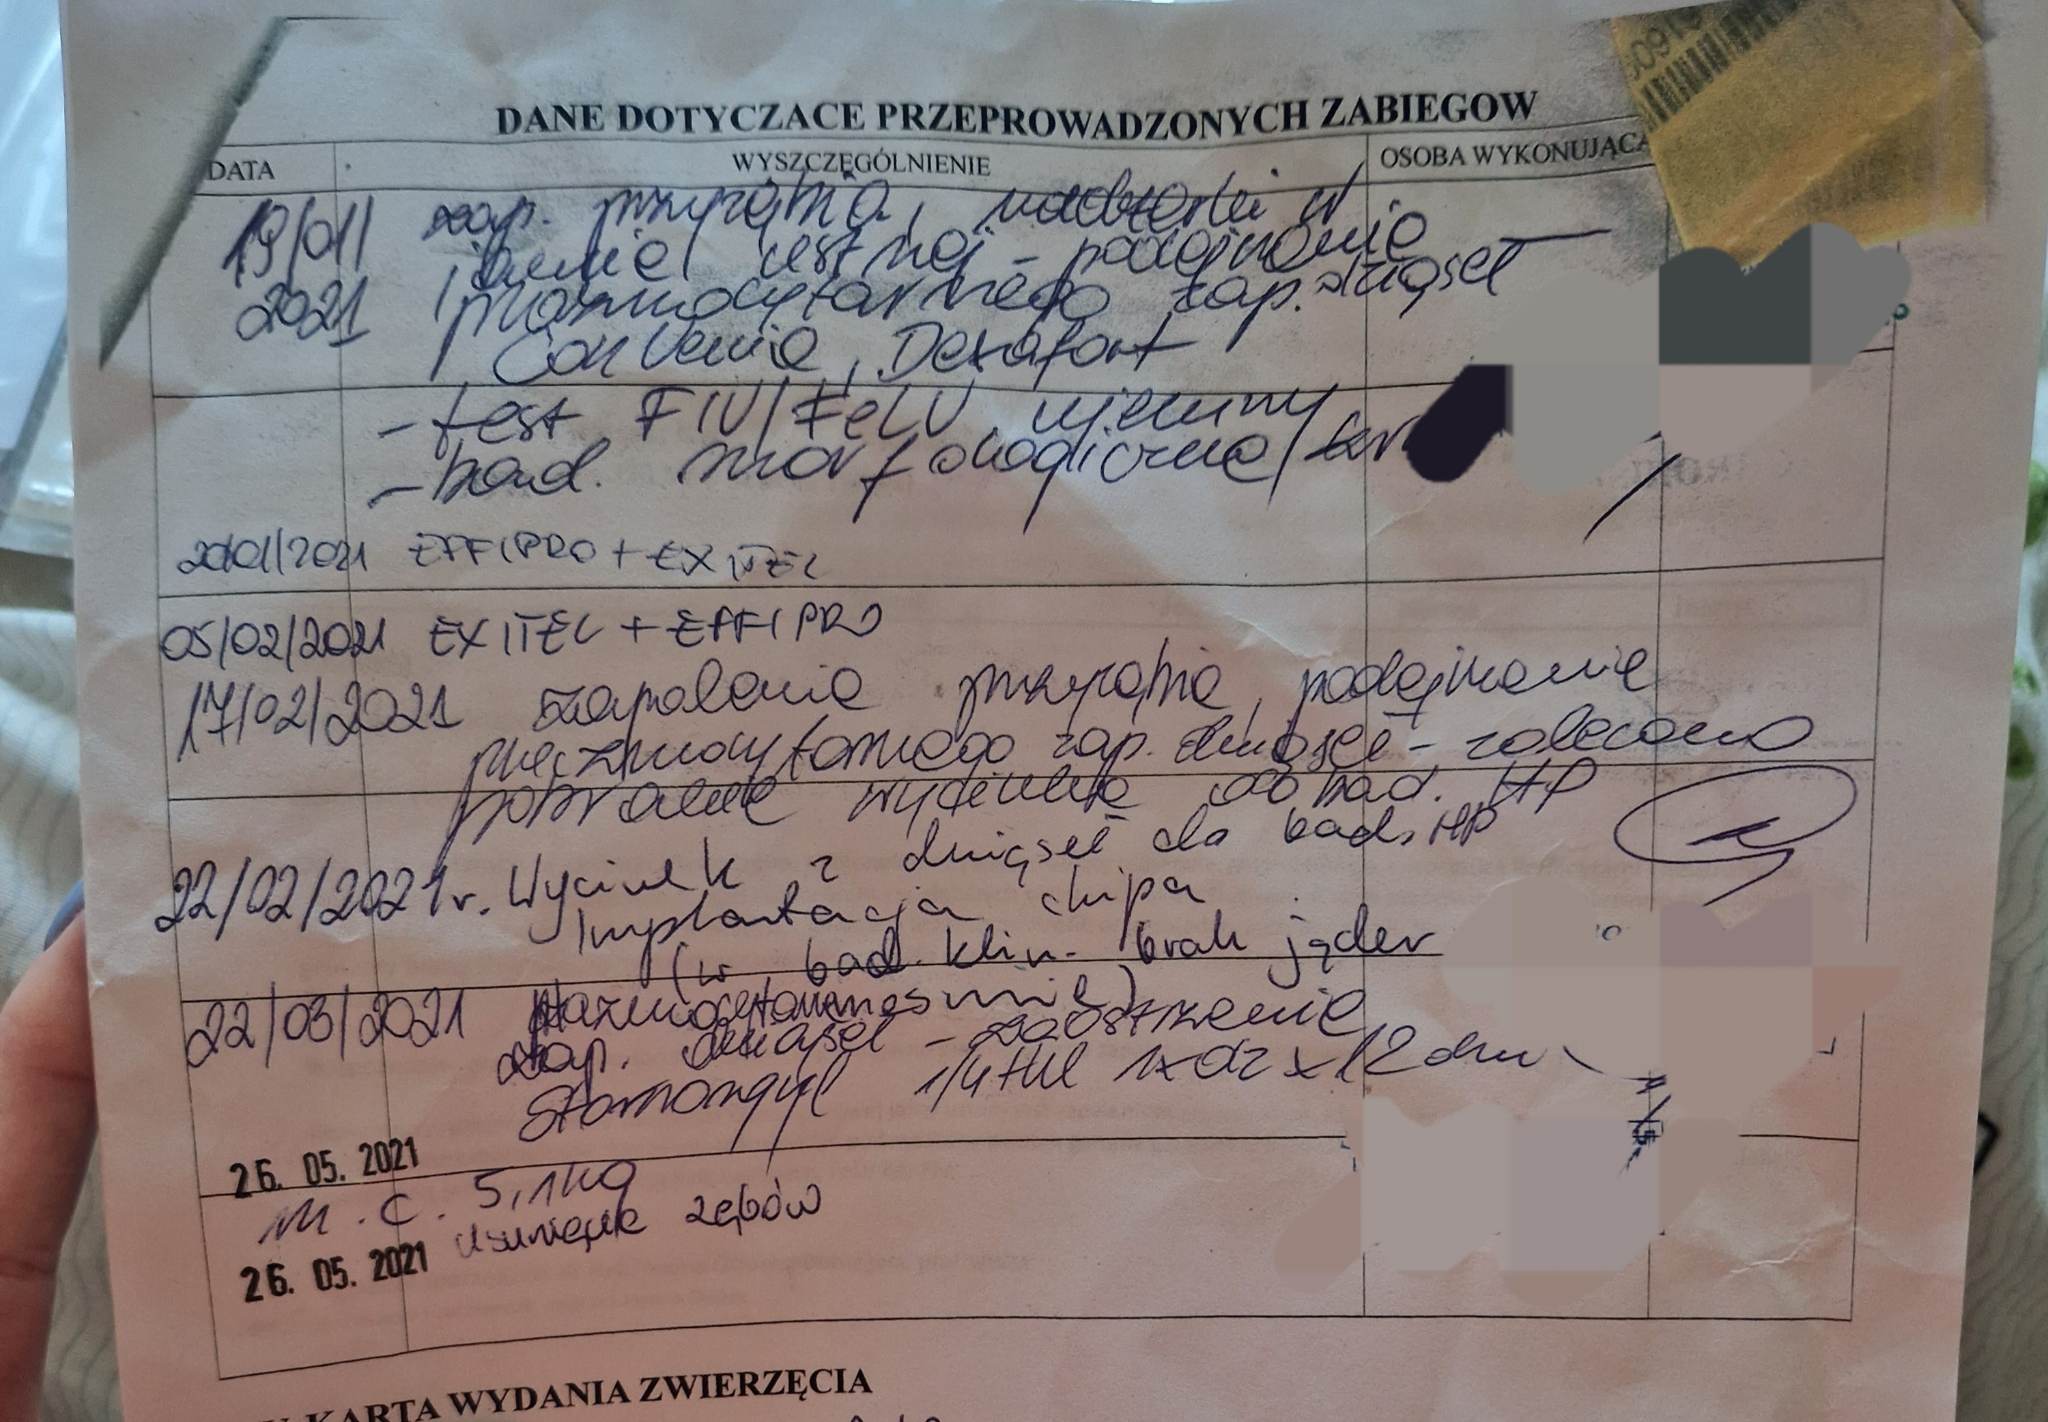 DANE DOTYCZACE PRZEPROWADZONYCH ZABIEGOW
DATA WYSZCZĘGÓLNIENIE OSOBA WYKONUJĄCA
19/01/ zap. przyzębia, nadżerki w
2021 jamie ustnej - podejrzenie
plazmocytarnego zap. dziąseł
Convenia, Dexafort
- test FIV/FeLV ujemny
- bad. morfologiczne/
20/01/2021 EFFIPRO + EXITEL
05/02/2021 EXITEL + EFFIPRO
17/02/2021 zapalenie przyzębia, podejrzenie
plazmocytarnego zap. dziąseł - zalecono
pobranie wycinka do bad. HP
22/02/2021 r. Wycinek z dziąseł do bad. HP
Implantacja chipa
(w bad. klin. brak jąder
w
22/03/2021 plazmocytarne
zap. dziąseł - zaostrzenie
Stomorgyl 1/4 tbl 1xdz x 12 dni
26. 05. 2021
m.c. 5,1kg
26. 05. 2021 usunięcie zębów
KARTA WYDANIA ZWIERZĘCIA